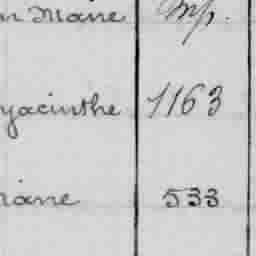 n Marie Imp.
yacinthe 1163
riane 533